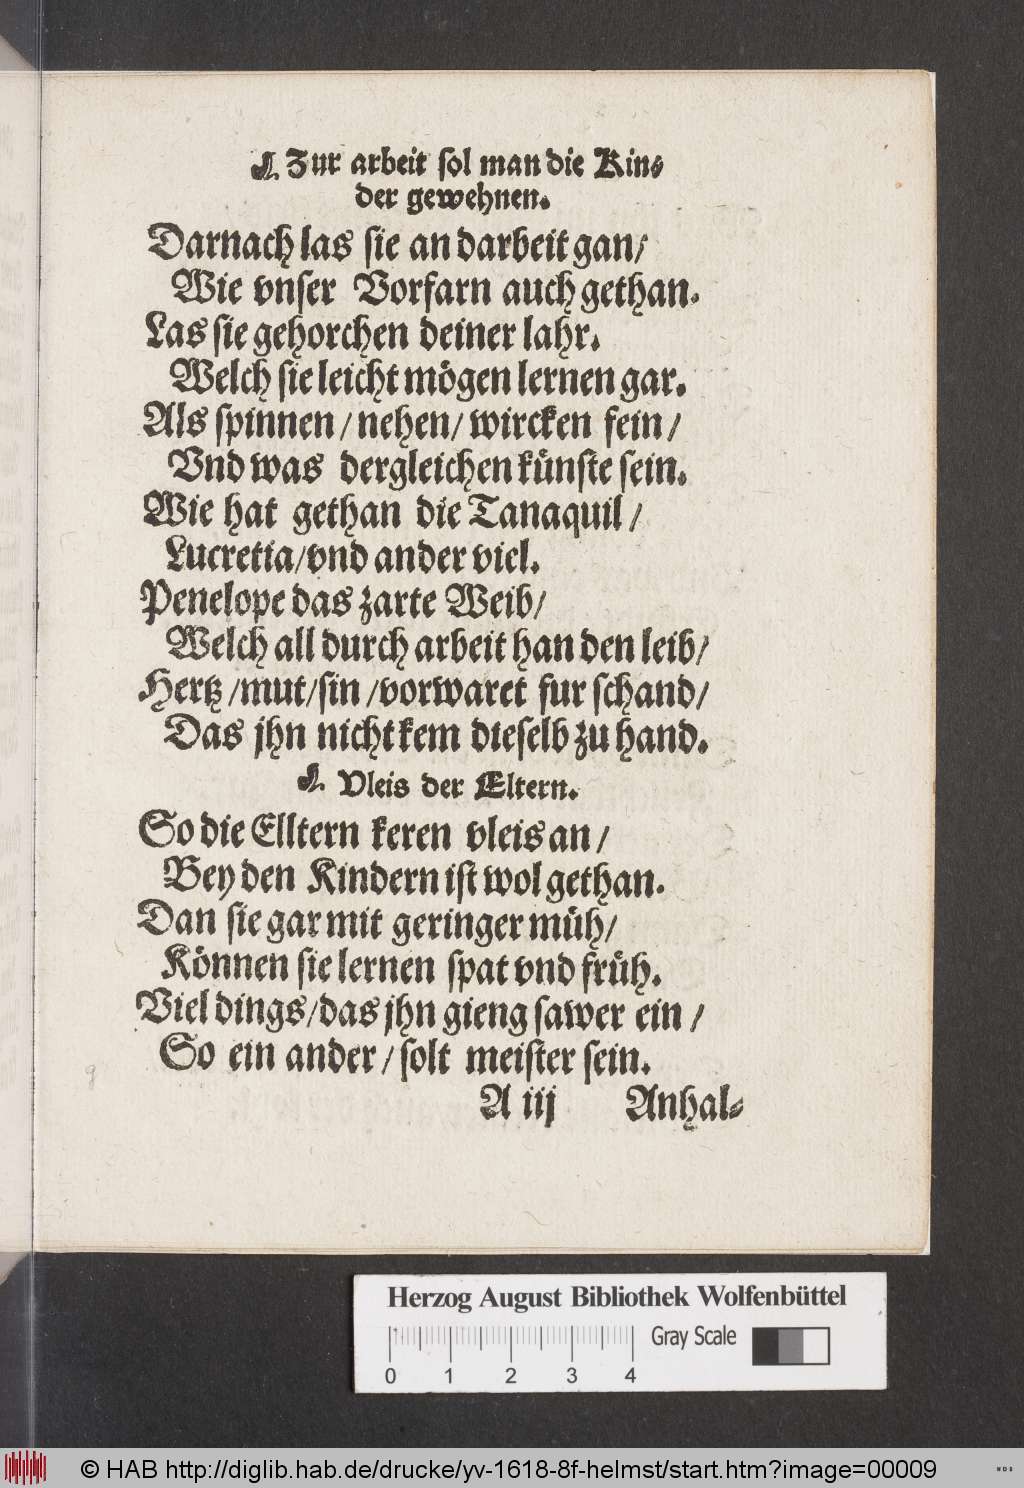 ☙ Zur arbeit sol man die Kin⸗
der gewehnen.
Darnach las sie an darbeit gan/
Wie vnser Vorfarn auch gethan.
Las sie gehorchen deiner lahr.
Welch sie leicht mögen lernen gar.
Als spinnen/ nehen/ wircken fein/
Vnd was dergleichen künste sein.
Wie hat gethan die Tanaquil/
Lucretia/vnd ander viel.
Penelope das zarte Weib/
Welch all durch arbeit han den leib/
Hertz/mut/sin/vorwaret fur schand/
Das jhn nicht kem dieselb zu hand.
☙ Vleis der Eltern.
So die Elltern keren vleis an/
Bey den Kindern ist wol gethan.
Dan sie gar mit geringer müh/
Können sie lernen spat vnd früh.
Viel dings/das jhn gieng sawer ein/
So ein ander/ solt meister sein.
A iij Anhal⸗
Herzog August Bibliothek Wolfenbüttel
Gray Scale
0 1 2 3 4
© HAB http://diglib.hab.de/drucke/yv-1618-8f-helmst/start.htm?image=00009